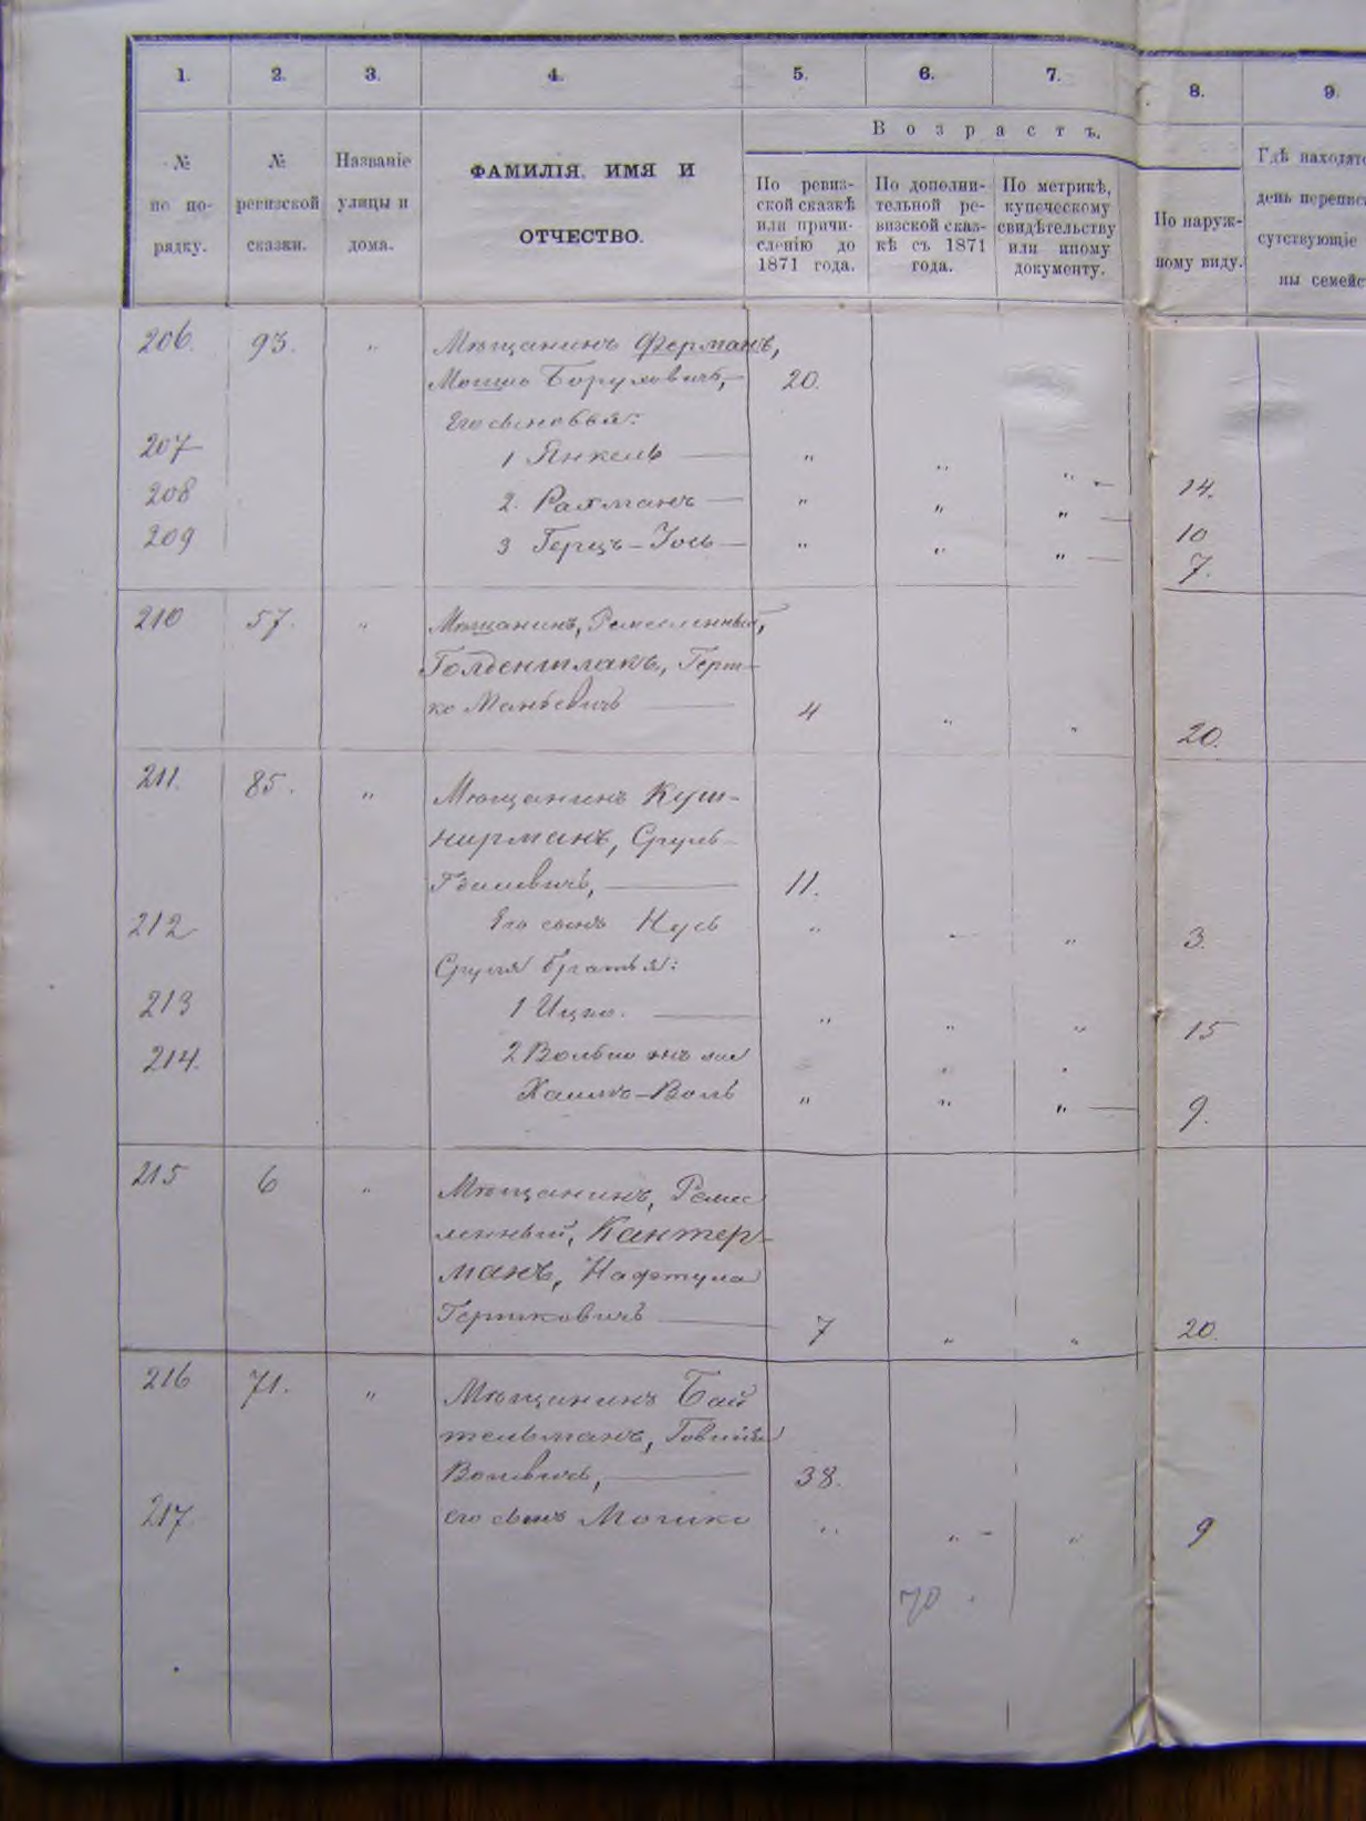 1. 2. 3. 4. 5. 6. 7. 8. 9.
Возрастъ.
№ по по- рядку.
№ ревизской сказки.
Названіе улицы и дома.
ФАМИЛІЯ, ИМЯ И
ОТЧЕСТВО.
По ревиз-
ской сказкѣ
или причи-
сленію до
1871 года.
По дополни-
тельной ре-
визской сказ-
кѣ съ 1871
года.
По метрикѣ,
купеческому
свидѣтельству
или иному
документу.
По наруж-
ному виду.
Гдѣ находятс
день перепис
сутствующіе
ны семейс
206. 93. " Мѣщанинъ Ферманъ,
Мошко Боруховичъ, 20.
Его сыновья:
207 1 Янкель " " " 14.
208 2. Рахманъ " " " 10
209 3 Герцъ-Іось " " " 7.
210 57. " Мѣщанинъ, Ремесленный,
Голденшлакъ, Герш-
ко Маньевичъ 4 " " 20.
211. 85. " Мѣщанинъ Куш-
нирманъ, Сруль
11.
212 Его сынъ Нусь " " " 3.
Сруля братья:
213 1 Ицко. " " " 15
214. 2 Волько онъ же
Хаимъ-Воль " " " 9.
215 6 " Мѣщанинъ, Ремес
ленный, Кантер-
манъ, Нафтула
Гершковичъ 7 " " 20.
216 71. " Мѣщанинъ Бай
тельманъ,
38.
217. его сынъ Мошко " " " 9
70